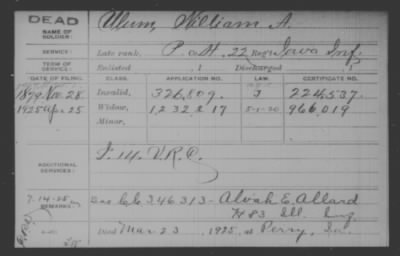 DEAD
NAME OF SOLDIER:
Allum, William A.
SERVICE:
Late rank, P. & H. 22 Reg't Iowa Inf.
TERM OF SERVICE:
Enlisted , 1 Discharged , 1
DATE OF FILING. CLASS. APPLICATION NO. LAW. CERTIFICATE NO.
1879 Nov. 28 Invalid, 326,809. 224,537.
1925 Apr. 25 Widow, 1,232,217 5-1-20 966,019
Minor,
ADDITIONAL SERVICES:
I. 14. V.R.C.
7-14-25
REMARKS:
346,313 - Alvah E. Allard
H 83 Ill. Inf.
Died Mar 23, 1925, at Perry, Ia.